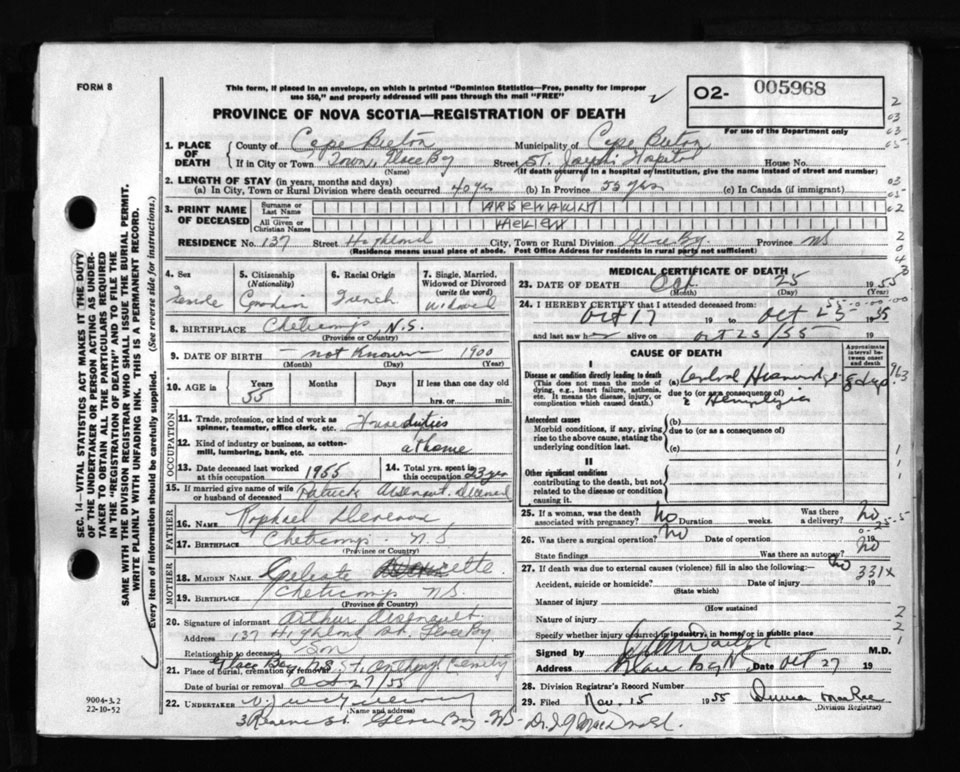 FORM 8
This form, if placed in an envelope, on which is printed "Dominion Statistics—Free, penalty for improper
use $50," and properly addressed will pass through the mail "FREE"
02- 005968
PROVINCE OF NOVA SCOTIA—REGISTRATION OF DEATH
For use of the Department only
1. PLACE OF DEATH
County of Cape Breton Municipality of Cape Breton
If in City or Town Town, Glace Bay Street St. Joseph's Hospital House No.
(Name) (If death occurred in a hospital or institution, give the name instead of street and number)
2. LENGTH OF STAY (in years, months and days)
(a) In City, Town or Rural Division where death occurred 40 yrs (b) In Province 55 yrs (c) In Canada (if immigrant)
3. PRINT NAME OF DECEASED
Surname or Last Name ARSENAULT
All Given or Christian Names HELEN
RESIDENCE No. 137 Street Highland City, Town or Rural Division Glace Bay. Province NS
(Residence means usual place of abode. Post Office Address for residents in rural parts not sufficient)
4. Sex
5. Citizenship (Nationality)
6. Racial Origin French
7. Single, Married, Widowed or Divorced (write the word) Widowed
8. BIRTHPLACE Cheticamp, N.S.
(Province or Country)
9. DATE OF BIRTH - not Known 1900
(Month) (Day) (Year)
10. AGE in Years 55 Months Days If less than one day old
hrs. or min.
OCCUPATION
11. Trade, profession, or kind of work as
spinner, teamster, office clerk, etc. House duties
12. Kind of industry or business, as cotton-
mill, lumbering, bank, etc. at home
13. Date deceased last worked at this occupation 1955
14. Total yrs. spent in this occupation 23 yrs
15. If married give name of wife
or husband of deceased Patrick Arsenault. Deceased
FATHER
16. Name Raphael
17. Birthplace Cheticamp N.S
(Province or Country)
MOTHER
18. Maiden Name Celeste
19. Birthplace Cheticamp NS.
(Province or Country)
20. Signature of informant Arthur Arsenault
Address 137 Highland St. Glace Bay.
Relationship to deceased Son
21. Place of burial, cremation or removal Glace Bay, NS St. Anthony's Cemetery
Date of burial or removal Oct 27/55
22. UNDERTAKER
(Name and address)
Glace Bay - NS
MEDICAL CERTIFICATE OF DEATH
23. DATE OF DEATH Oct. 25 1955
(Month) (Day) (Year)
24. I HEREBY CERTIFY that I attended deceased from:
Oct 17 19 to Oct 25 1955
and last saw her alive on Oct 25/55 19
CAUSE OF DEATH
Approximate interval between onset and death
I
Disease or condition directly leading to death
(This does not mean the mode of dying, e.g., heart failure, asthenia, etc. It means the disease, injury, or complication which caused death.)
(a) Cerebral Hemorrhage 8 days
due to (or as a consequence of)
Hemiplegia
Antecedent causes
Morbid conditions, if any, giving rise to the above cause, stating the underlying condition last.
(b)
due to (or as a consequence of)
(c)
II
Other significant conditions
contributing to the death, but not related to the disease or condition causing it.
25. If a woman, was the death associated with pregnancy? no Duration weeks. Was there a delivery? no
26. Was there a surgical operation? no Date of operation 19
State findings Was there an autopsy? no
27. If death was due to external causes (violence) fill in also the following:—
331x
Accident, suicide or homicide? Date of injury 19
(State which)
Manner of injury
(How sustained
Nature of injury
Specify whether injury occurred in industry, in home, or in public place
Signed by M.D.
Address Glace Bay NS Date Oct 27 19
28. Division Registrar's Record Number
29. Filed Nov. 15 1955
(Division Registrar)
SEC. 14—VITAL STATISTICS ACT MAKES IT THE DUTY
OF THE UNDERTAKER OR PERSON ACTING AS UNDER-
TAKER TO OBTAIN ALL THE PARTICULARS REQUIRED
IN THE "REGISTRATION OF DEATH" AND TO FILE THE
SAME WITH THE DIVISION REGISTRAR WHO SHALL ISSUE THE BURIAL PERMIT.
WRITE PLAINLY WITH UNFADING INK. THIS IS A PERMANENT RECORD.
Every item of information should be carefully supplied. (See reverse side for instructions.)
9004-3.2
22-10-52